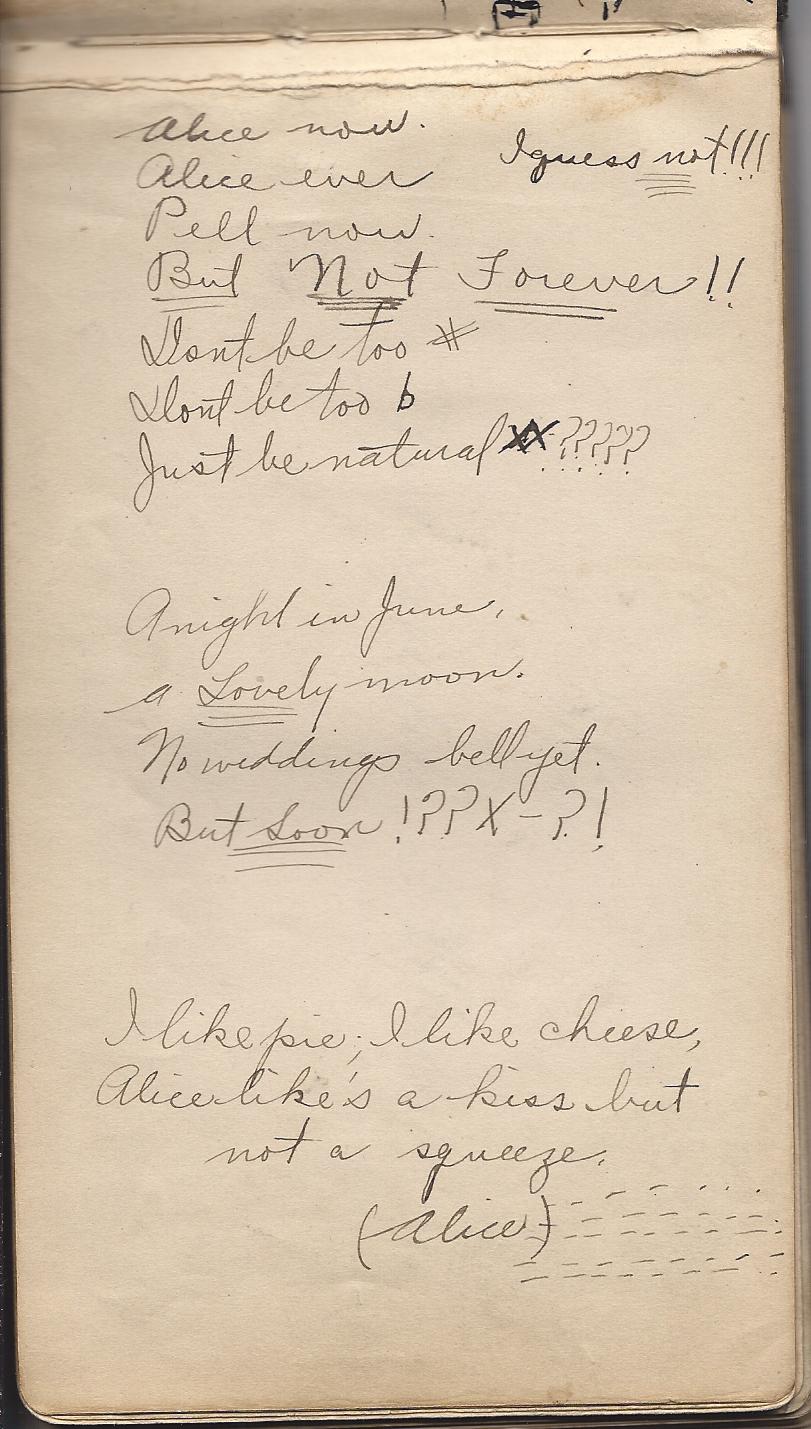 Alice now.
Alice ever
I guess not!!!
Pell now.
But Not Forever!!
Dont be too #
Dont be too b
Just be natural XX-?????
A night in June,
a Lovely moon.
No weddings bell yet.
But Soon !??X-?!
I like pie; I like cheese,
Alice like's a kiss but
not a squeeze.
(Alice)